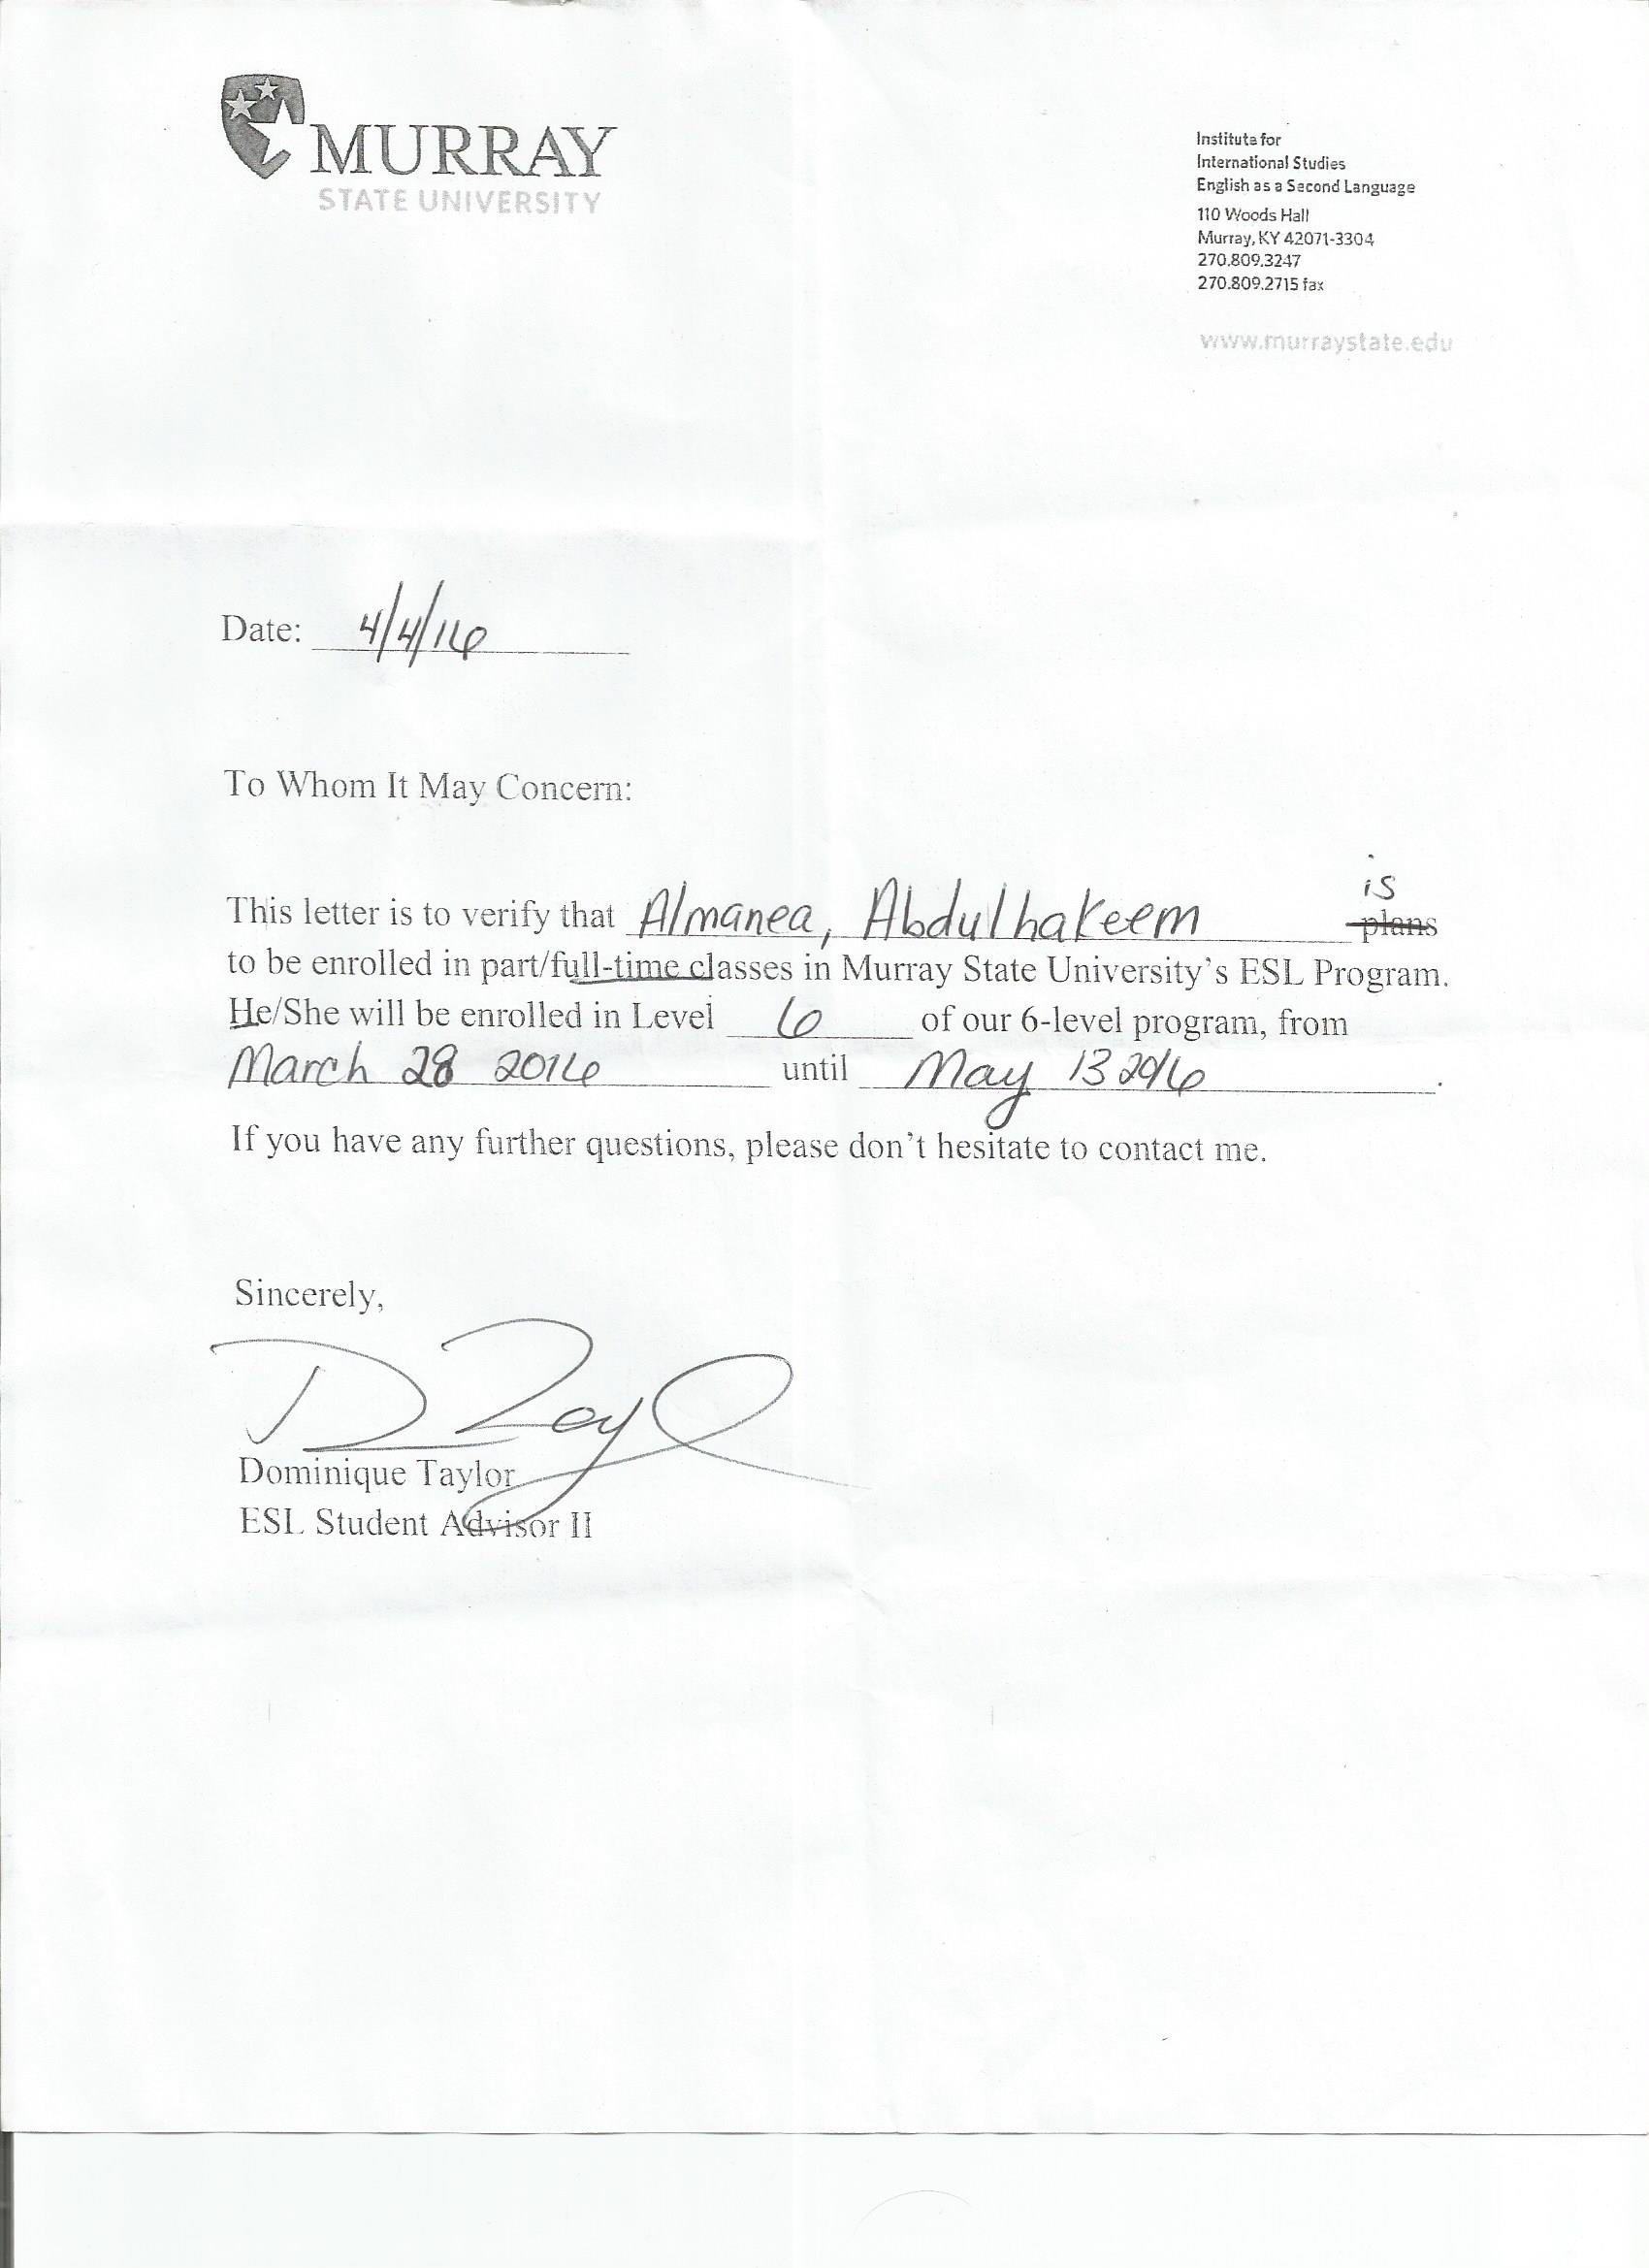 MURRAY
STATE UNIVERSITY
Institute for
International Studies
English as a Second Language
110 Woods Hall
Murray, KY 42071-3304
270.809.3247
270.809.2715 fax
www.murraystate.edu
Date: 4/4/16
To Whom It May Concern:
is
This letter is to verify that Almanea, Abdulhakeem plans
to be enrolled in part/full-time classes in Murray State University's ESL Program.
He/She will be enrolled in Level 6 of our 6-level program, from
March 28 2016 until May 13 2016.
If you have any further questions, please don't hesitate to contact me.
Sincerely,
D Tayl
Dominique Taylor
ESL Student Advisor II